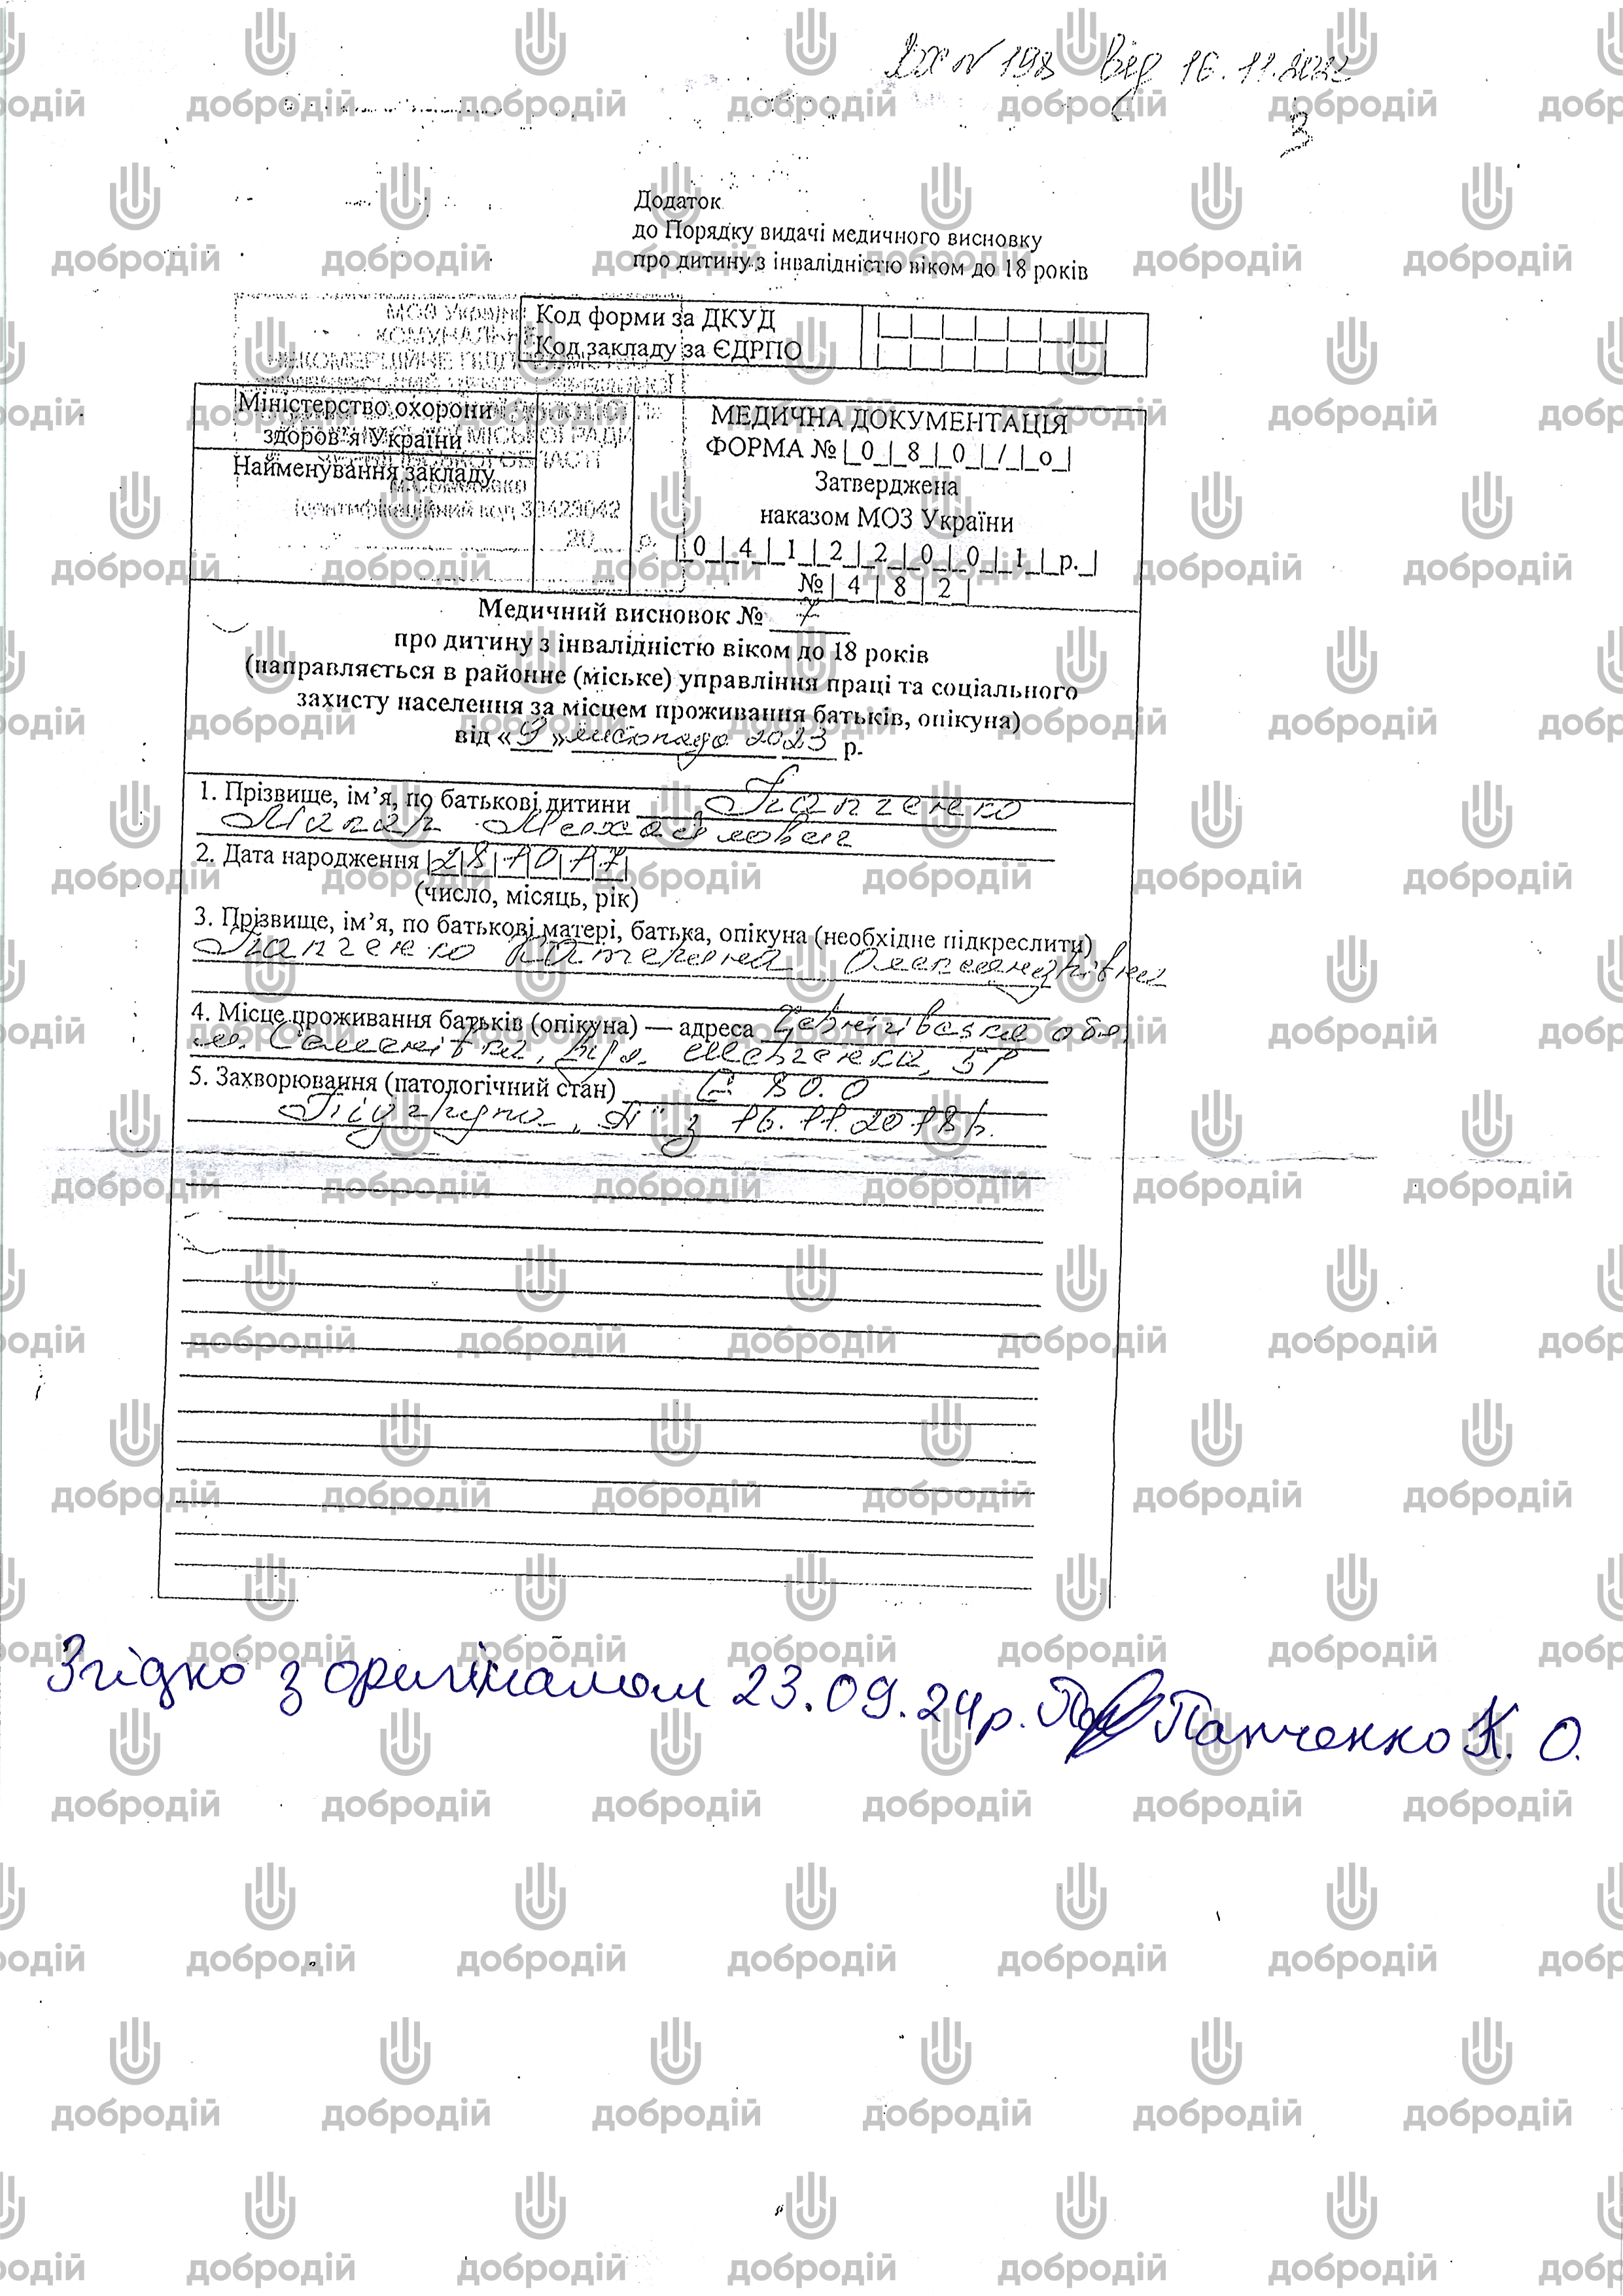 Вх № 198 від 16.11.2022
3
Додаток
до Порядку видачі медичного висновку
про дитину з інвалідністю віком до 18 років
Код форми за ДКУД
Код закладу за ЄДРПО
МОЗ України
КОМУНАЛЬНЕ
НЕКОМЕРЦІЙНЕ
МІСЬКОЇ РАДИ
ОБЛАСТІ
ідентифікаційний код
20 р.
Міністерство охорони
здоров’я України
Найменування закладу
МЕДИЧНА ДОКУМЕНТАЦІЯ
ФОРМА № |_0_|_8_|_0_|_/_|_о_|
Затверджена
наказом МОЗ України
|_0_|_4_|_1_|_2_|_2_|_0_|_0_|_1_|_р._|
№ | 4 | 8 | 2 |
Медичний висновок № 7
про дитину з інвалідністю віком до 18 років
(направляється в районне (міське) управління праці та соціального
захисту населення за місцем проживання батьків, опікуна)
від «9» листопада 2023 р.
1. Прізвище, ім’я, по батькові дитини Папченко
Михайлович
2. Дата народження |2|8|1|0|1|7|
(число, місяць, рік)
3. Прізвище, ім’я, по батькові матері, батька, опікуна (необхідне підкреслити)
Папченко Катерина Олександрівна
4. Місце проживання батьків (опікуна) — адреса Чернігівська обл,
м. Семенівка, вул. Шевченка, 51
5. Захворювання (патологічний стан) G 80.0
Підгрупа „А" з 16.11.2018р.
Згідно з оригіналом 23.09.24р. Папченко К. О.
добродій